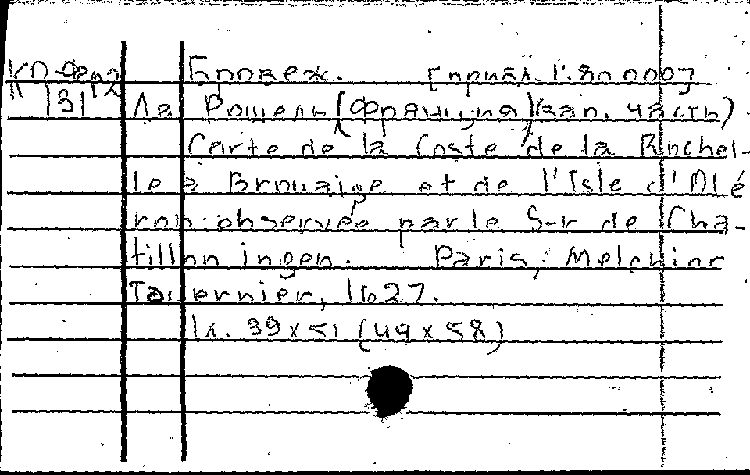 КП-Фр2 Бровеж. [прибл. 1:80.000]
131 Ла Рошель (Франция) (зап. часть)
Carte de la Coste de la Rochel-
le a Brouaige et de l'Isle d'Olé
ron observée par le S-r de Cha-
tillon ingen. Paris, Melchior
Tavernier, 1627.
1л. 39x51 (49x58)